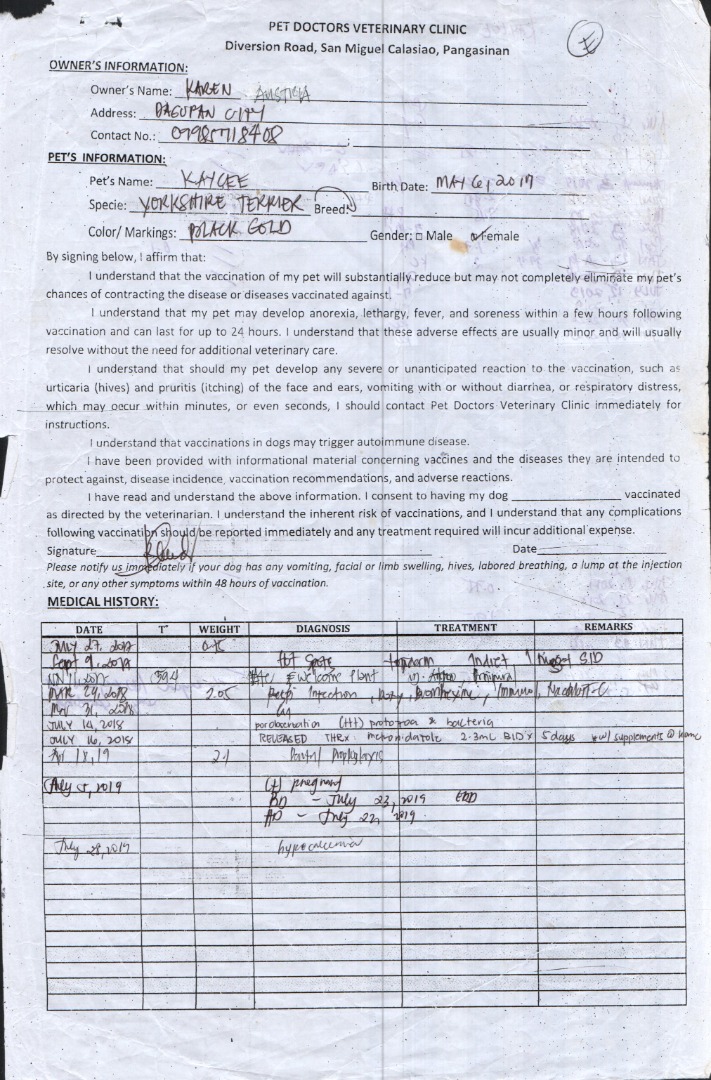 PET DOCTORS VETERINARY CLINIC
Diversion Road, San Miguel Calasiao, Pangasinan
OWNER'S INFORMATION:
Owner's Name: KAREN
Address: DAGUPAN CITY
Contact No.:
PET'S INFORMATION:
Pet's Name: KAYCEE Birth Date: MAY 6, 2017
Specie: YORKSHIRE TERRIER Breed:
Color/ Markings: BLACK GOLD Gender: □ Male □ Female
By signing below, I affirm that:
I understand that the vaccination of my pet will substantially reduce but may not completely eliminate my pet's
chances of contracting the disease or diseases vaccinated against.
I understand that my pet may develop anorexia, lethargy, fever, and soreness within a few hours following
vaccination and can last for up to 24 hours. I understand that these adverse effects are usually minor and will usually
resolve without the need for additional veterinary care.
I understand that should my pet develop any severe or unanticipated reaction to the vaccination, such as
urticaria (hives) and pruritis (itching) of the face and ears, vomiting with or without diarrhea, or respiratory distress,
which may occur within minutes, or even seconds, I should contact Pet Doctors Veterinary Clinic immediately for
instructions.
I understand that vaccinations in dogs may trigger autoimmune disease.
I have been provided with informational material concerning vaccines and the diseases they are intended to
protect against, disease incidence, vaccination recommendations, and adverse reactions.
I have read and understand the above information. I consent to having my dog vaccinated
as directed by the veterinarian. I understand the inherent risk of vaccinations, and I understand that any complications
following vaccination should be reported immediately and any treatment required will incur additional expense.
Signature Date
Please notify us immediately if your dog has any vomiting, facial or limb swelling, hives, labored breathing, a lump at the injection
site, or any other symptoms within 48 hours of vaccination.
MEDICAL HISTORY:
DATE T° WEIGHT DIAGNOSIS TREATMENT REMARKS
JULY 27, 2017
Sept 9, 2017 Hot Spots SID
39.4
MAR 24, 2018 2.05 Infection
JULY 14, 2018 (+) protozoa & bacteria
JULY 16, 2018 RELEASED THRx: metronidazole 2.3mL BID x 5days w/ supplements @ home
Apr 18, 19 2.1
July 5, 2019 (+) pregnant
BD - July 23, 2019 EDD
AD - July 22, 2019
July 28, 2019 hypocalcemia